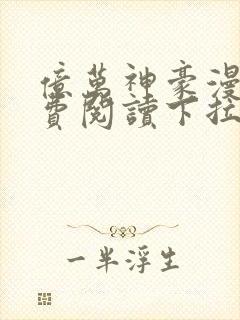 億萬神豪漫
費閱讀下拉
一半浮生